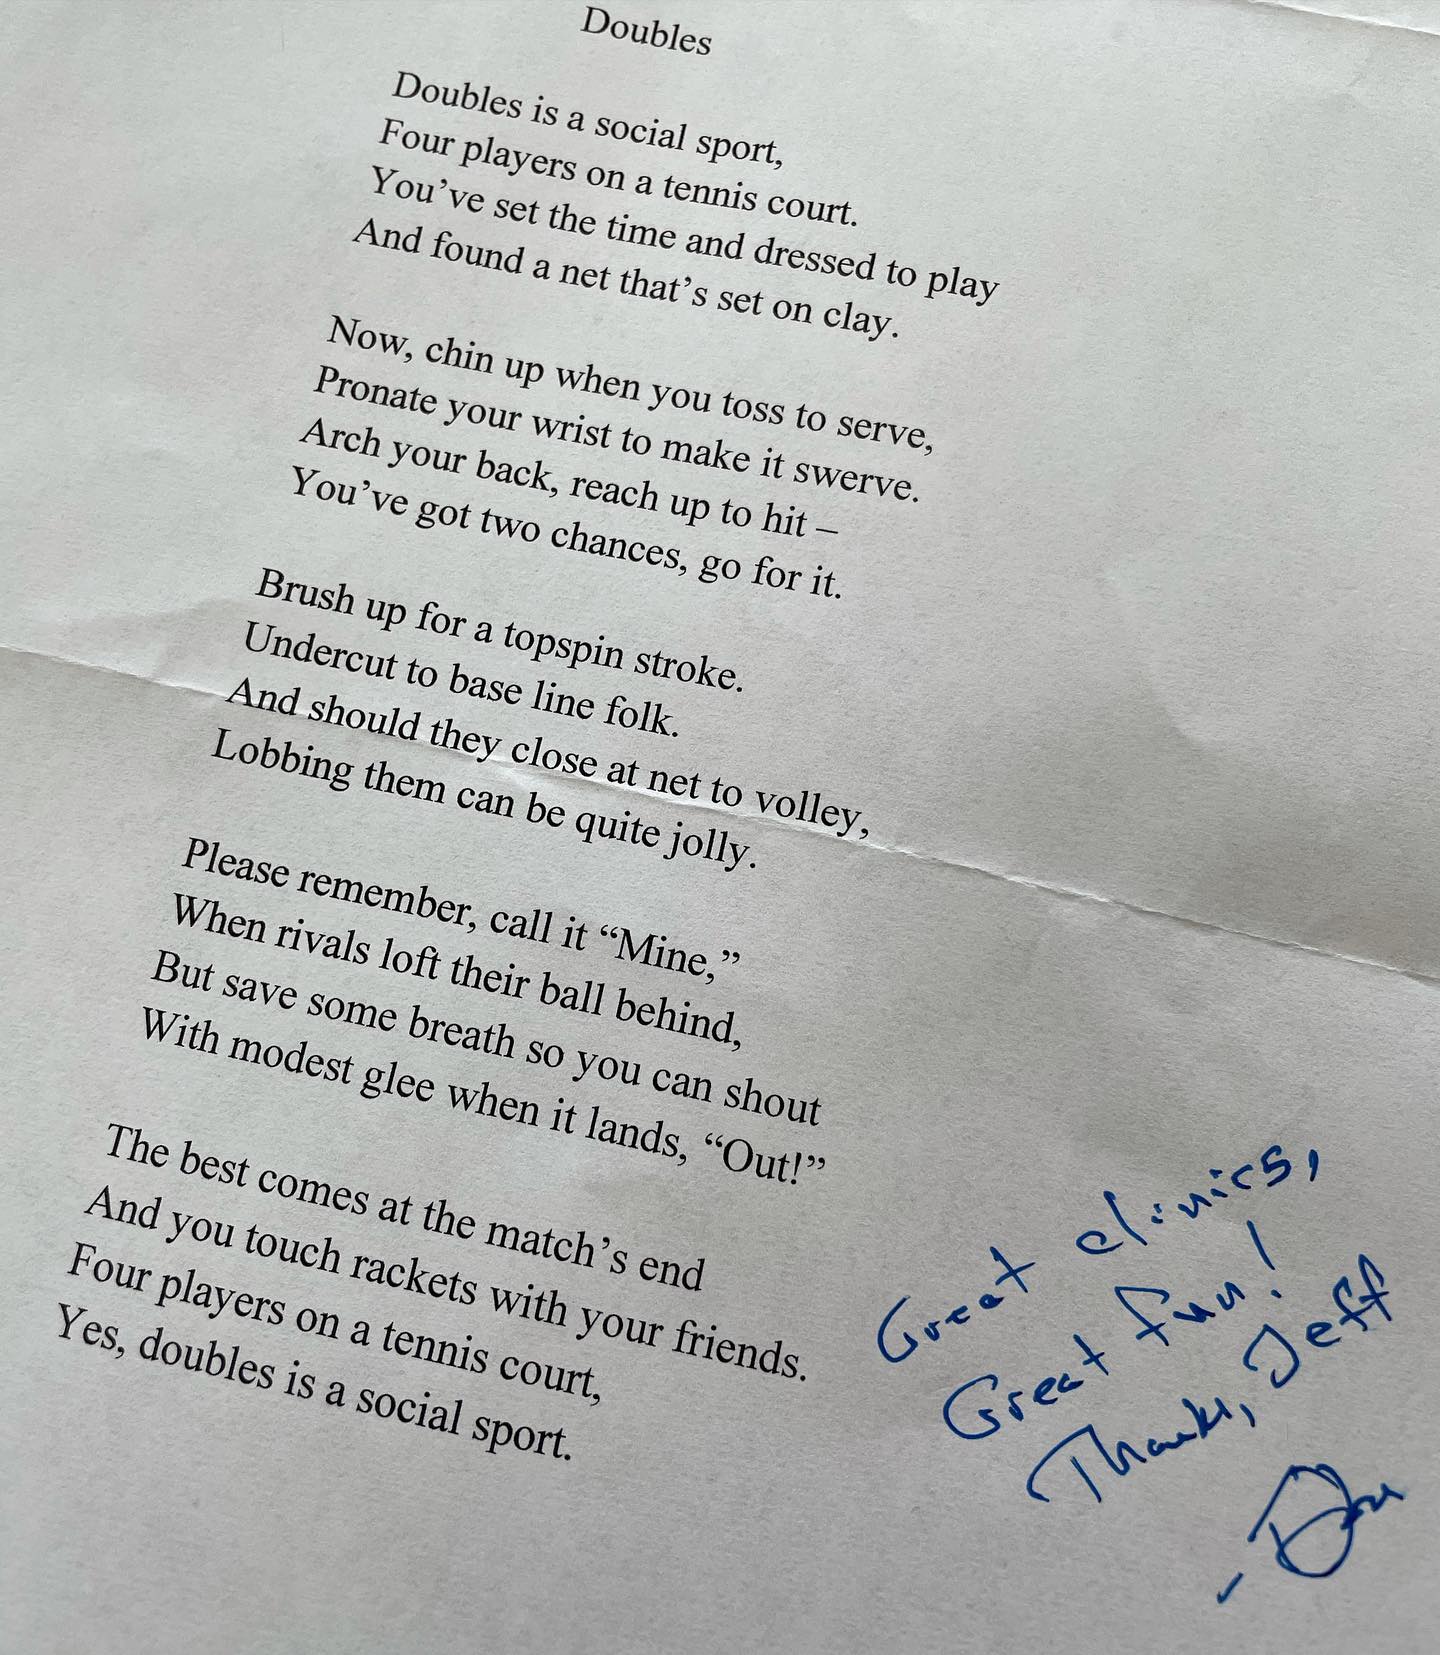 Doubles
Doubles is a social sport,
Four players on a tennis court.
You’ve set the time and dressed to play
And found a net that’s set on clay.
Now, chin up when you toss to serve,
Pronate your wrist to make it swerve.
Arch your back, reach up to hit –
You’ve got two chances, go for it.
Brush up for a topspin stroke.
Undercut to base line folk.
And should they close at net to volley,
Lobbing them can be quite jolly.
Please remember, call it “Mine,”
When rivals loft their ball behind,
But save some breath so you can shout
With modest glee when it lands, “Out!”
The best comes at the match’s end
And you touch rackets with your friends.
Four players on a tennis court,
Yes, doubles is a social sport.
Great clinics,
Great fun!
Thanks, Jeff